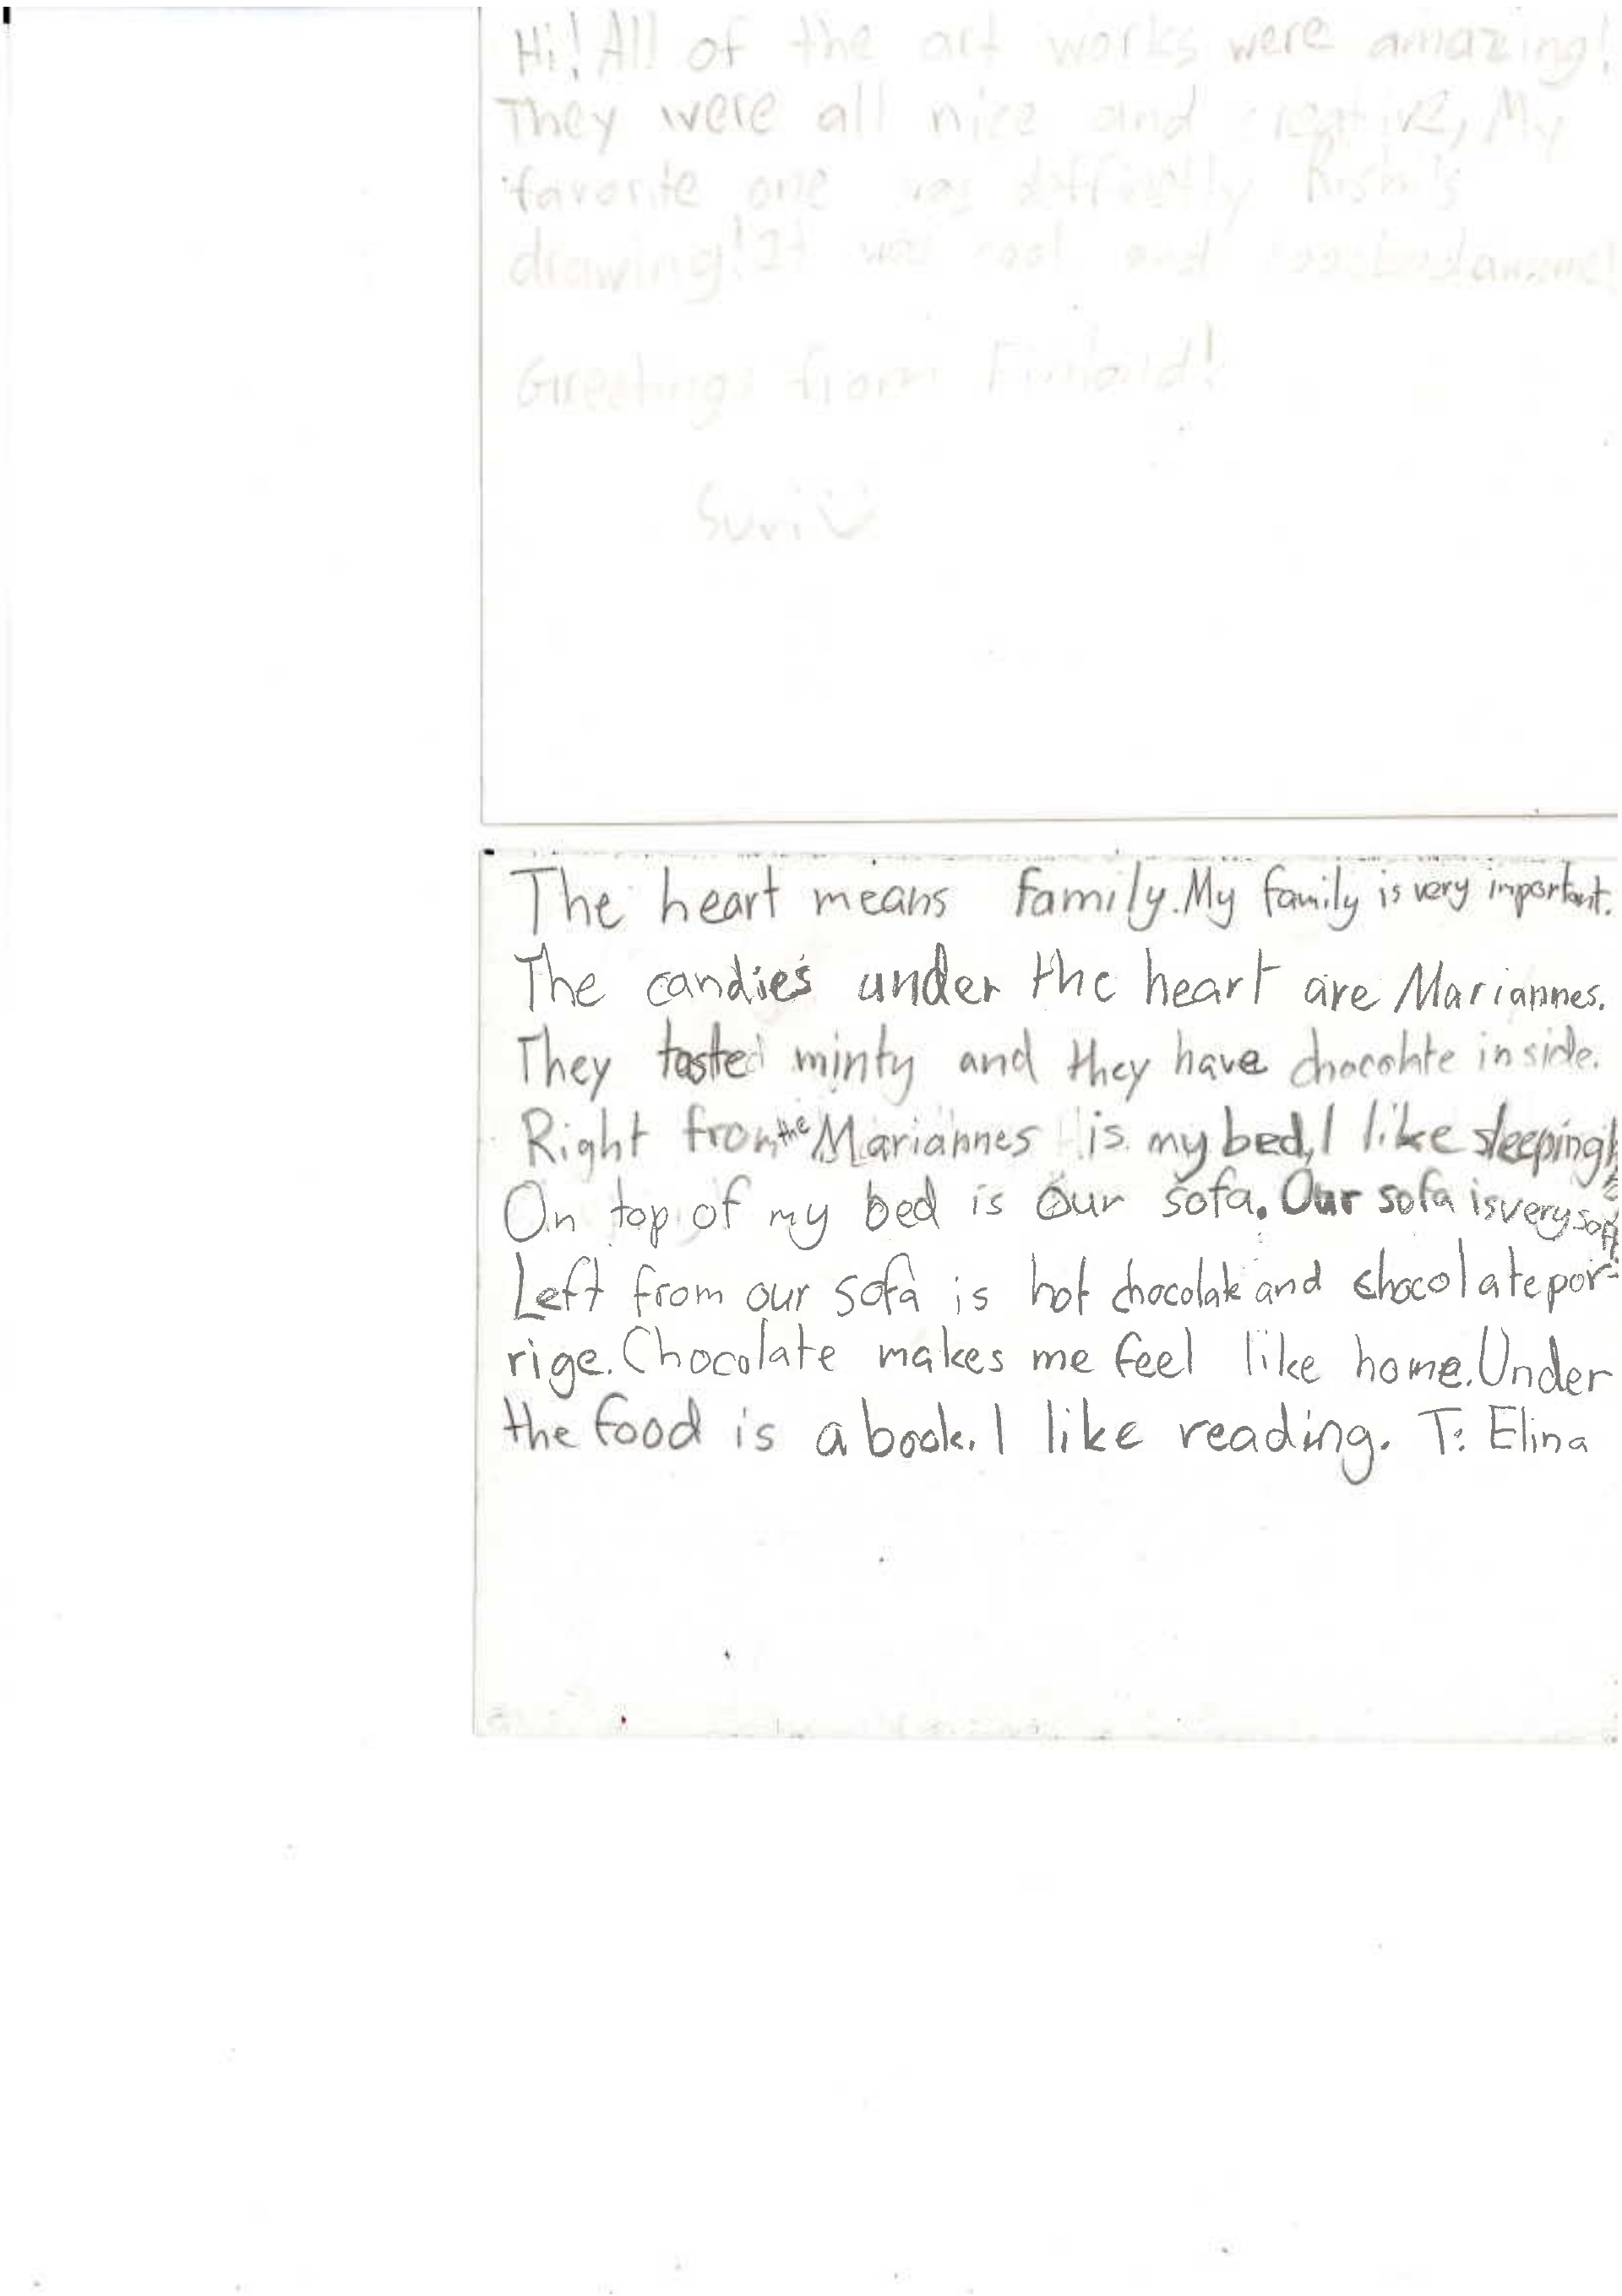 Hi! All of the art works were amazing!
They were all nice and creative, My
favorite one was deffinetly
drawing! It was cool and
Greetings from Finland!
Suvi
The heart means family. My family is very important.
The candies under the heart are Mariannes.
They taste minty and they have chocolate inside.
Right from the Mariannes is my bed, I like sleeping!
On top of my bed is our sofa. Our sofa is very soft.
Left from our sofa is hot chocolate and chocolate por-
rige. Chocolate makes me feel like home. Under
the food is a book. I like reading. T: Elina